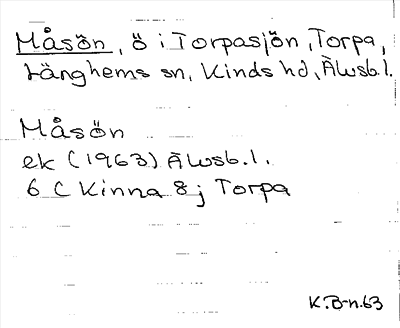 Måsön, ö i Torpasjön, Torpa,
Länghems sn, Kinds hd, Älvsb. l.
Måsön
ek (1963) Älvsb. l.
6 C Kinna 8 j Torpa
K.B-n. 63